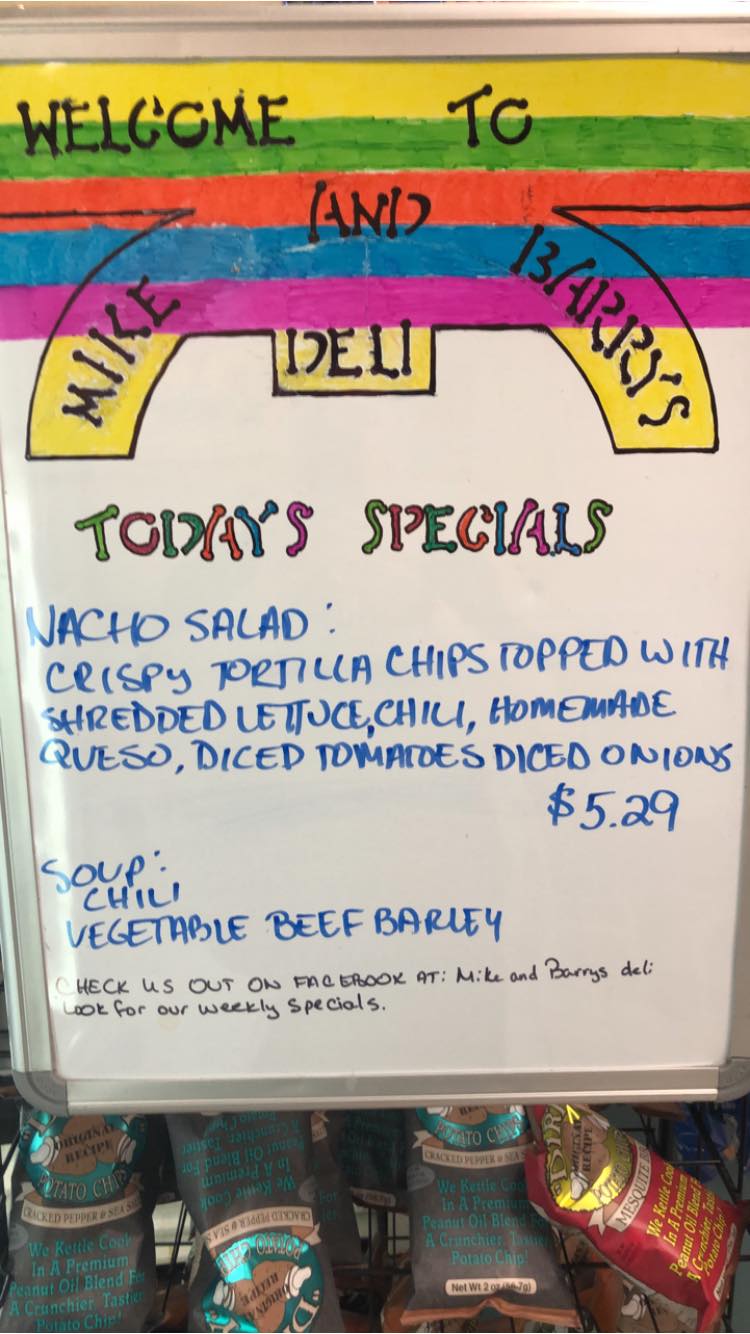 WELCOME TO
AND
MIKE
BARRY'S
DELI
TODAY'S SPECIALS
NACHO SALAD:
CRISPY TORTILLA CHIPS TOPPED WITH
SHREDDED LETTUCE, CHILI, HOMEMADE
QUESO, DICED TOMATOES DICED ONIONS
$5.29
SOUP:
CHILI
VEGETABLE BEEF BARLEY
CHECK US OUT ON FACEBOOK AT: Mike and Barrys deli
Look for our weekly specials.
ORIGINAL
RECIPE
POTATO CHIPS
CRACKED PEPPER & SEA
We Kettle Cook
In A Premium
Peanut Oil Blend For
A Crunchier, Tastier
Potato Chip!
Potato Chip!
A Crunchier, Tastier
Peanut Oil Blend For
In A Premium
We Kettle Cook
CRACKED PEPPER & SEA
POTATO
ORIGINAL
RECIPE
POTATO CHIPS
CRACKED PEPPER & SEA
We Kettle Cook
In A Premium
Peanut Oil Blend Fo
A Crunchier, Tastier
Potato Chip!
Net Wt 2 oz (56.7g)
ORIGINAL
RECIPE
MESQUITE
We Kettle Cook
In A Premium
Peanut Oil Blend For
A Crunchier, Tastier
Potato Chip!